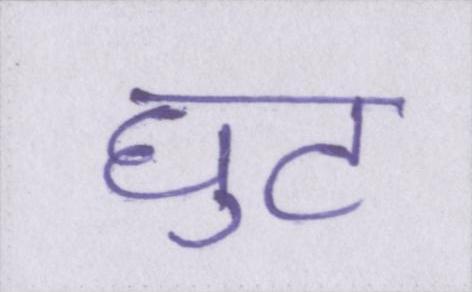 घुट